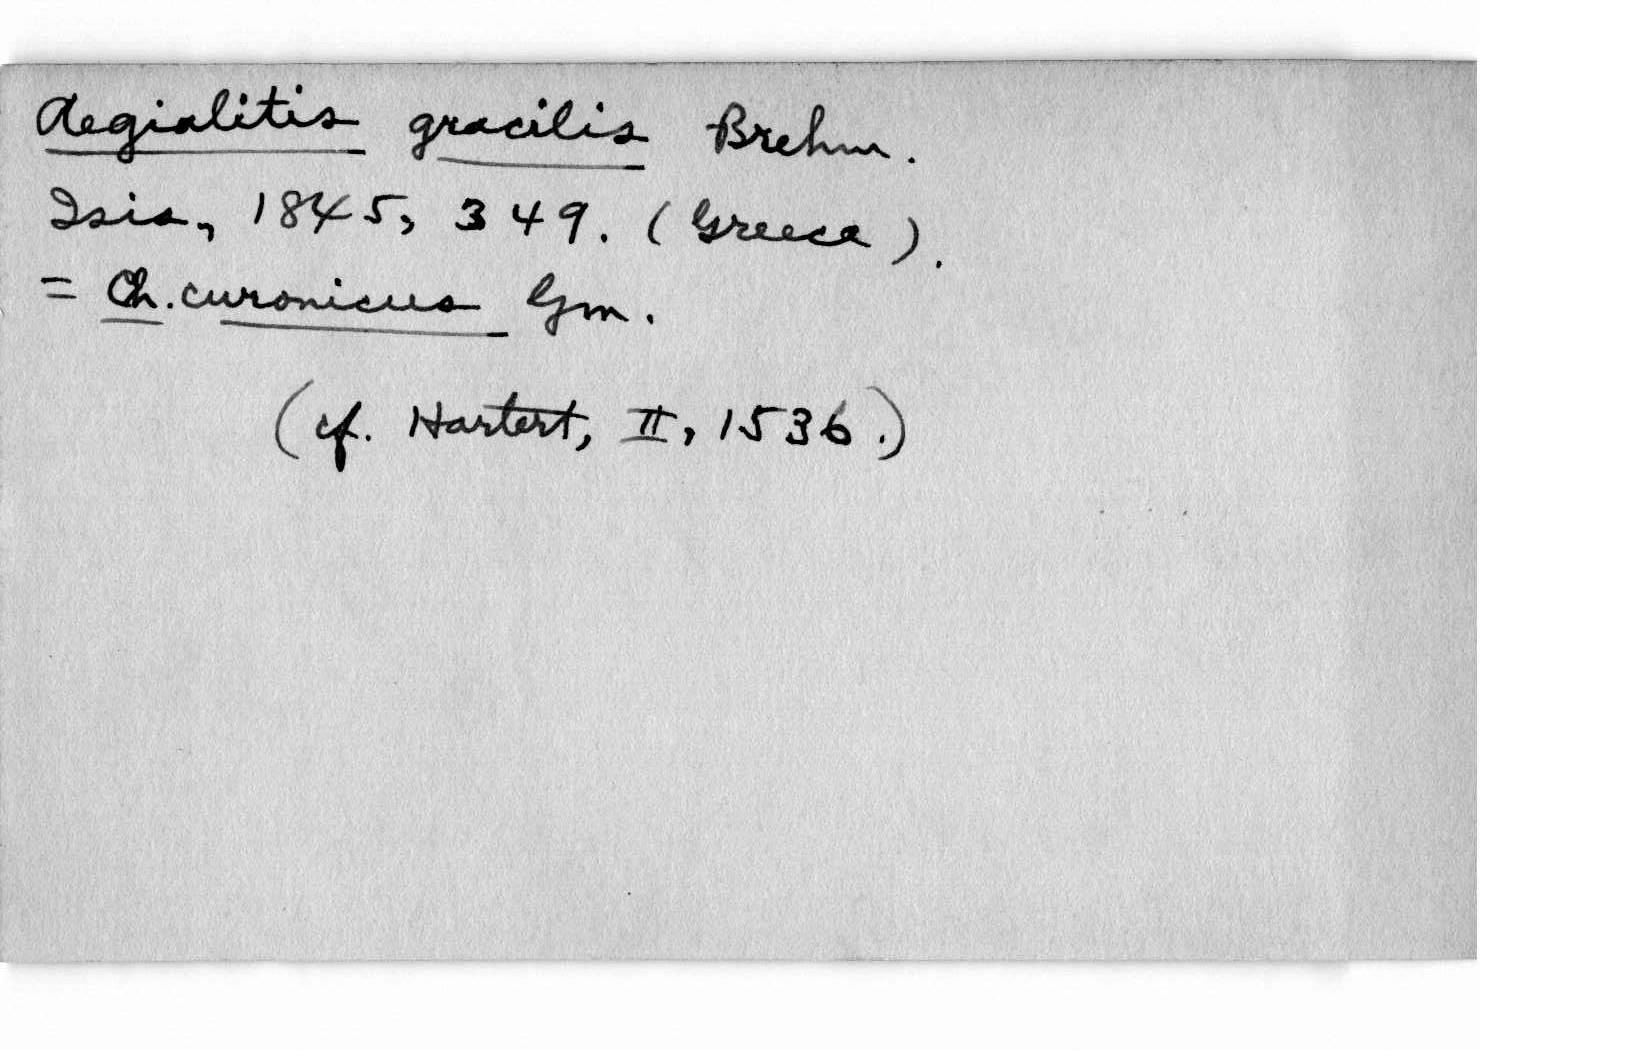 Aegialitis gracilis Brehm.
Isis, 1845, 349. (Greece).
= Ch. curonicus Gm.
(cf. Hartert, II, 1536.)